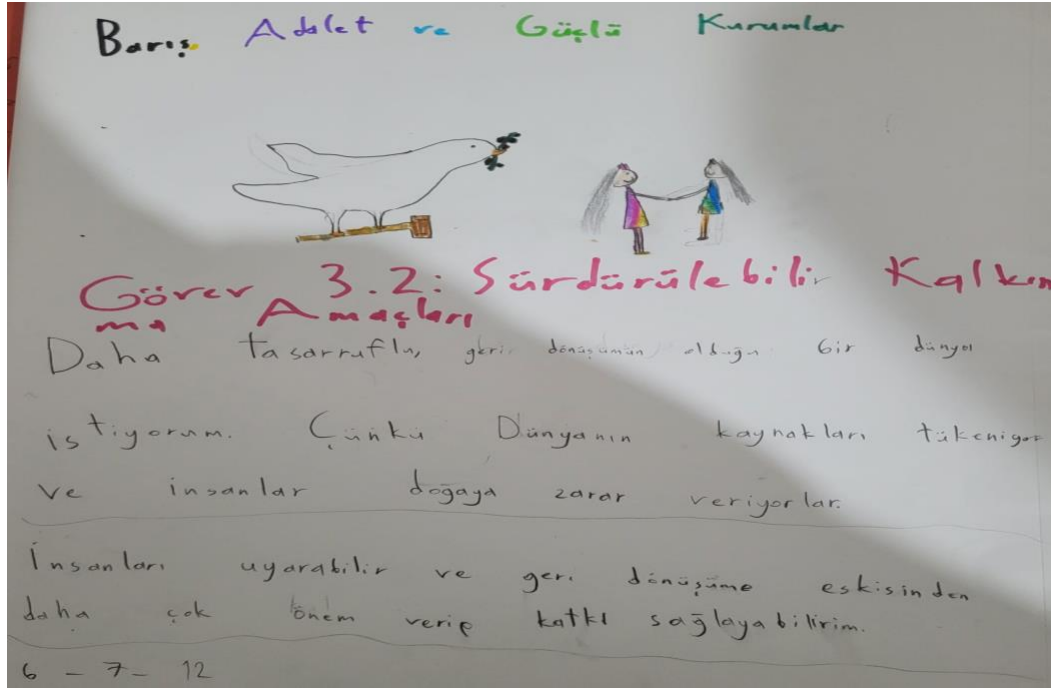 Barış Adalet ve Güçlü Kurumlar
Görev 3.2: Sürdürülebilir Kalkın
ma Amaçları
Daha tasarruflu, geri dönüşümün olduğu bir dünya
istiyorum. Çünkü Dünyanın kaynakları tükeniyor
ve insanlar doğaya zarar veriyorlar.
İnsanları uyarabilir ve geri dönüşüme eskisinden
daha çok önem verip katkı sağlayabilirim.
6 - 7 - 12